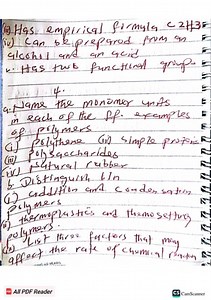 (iii) Has empirical formula C2H3
(iv) Can be prepared from an
alcohol and an acid
v. Has two functional group
4.
a. Name the monomer units
in each of the ff. examples
of polymers
(i) Polythene (iii) simple protein
(ii) Polysaccharides
(iv) Natural rubber
b. Distinguish b/n
(i) addition and condensation
polymers
(ii) thermoplastics and thermosetting
polymers.
c. List three factors that may
affect the rate of chemical
All PDF Reader
CS CamScanner